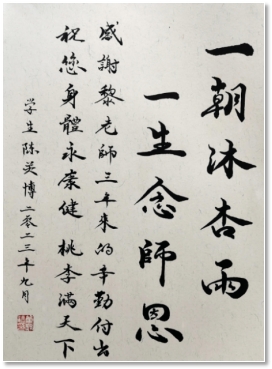 一朝沐杏雨
一生念師恩
感謝黎老師三年來的辛勤付出
祝您身體永葆健 桃李滿天下
学生陈英博二零二三年九月